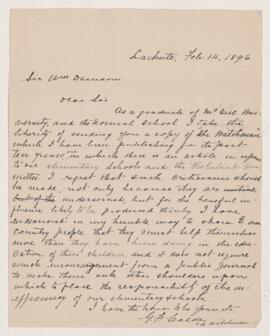 Lachute, Feb 14, 1896
Sir Wm Dawson
Dear Sir
As a graduate of McGill Uni-
versity, and the Normal School I take the
liberty of sending you a copy of the Watchman
which I have been publishing for the past
ten years, in which there is an article in
to our elementary Schools and the
mittee I regret that such criticisms should
be made, not only because they are
but of the undeserved, but for the baneful in-
fluence likely to be produced thereby, I have
endeavored in my humble way to show to our
country people that they must help themselves
more than they have been doing in the edu-
cation of their children, and it does not require
much encouragement from a public journal
to make them seek other shoulders upon
which to place the responsibility of the in-
efficiency of our elementary schools.
I have the honor to be yours etc
G. H. Calder
Ed. Watchman